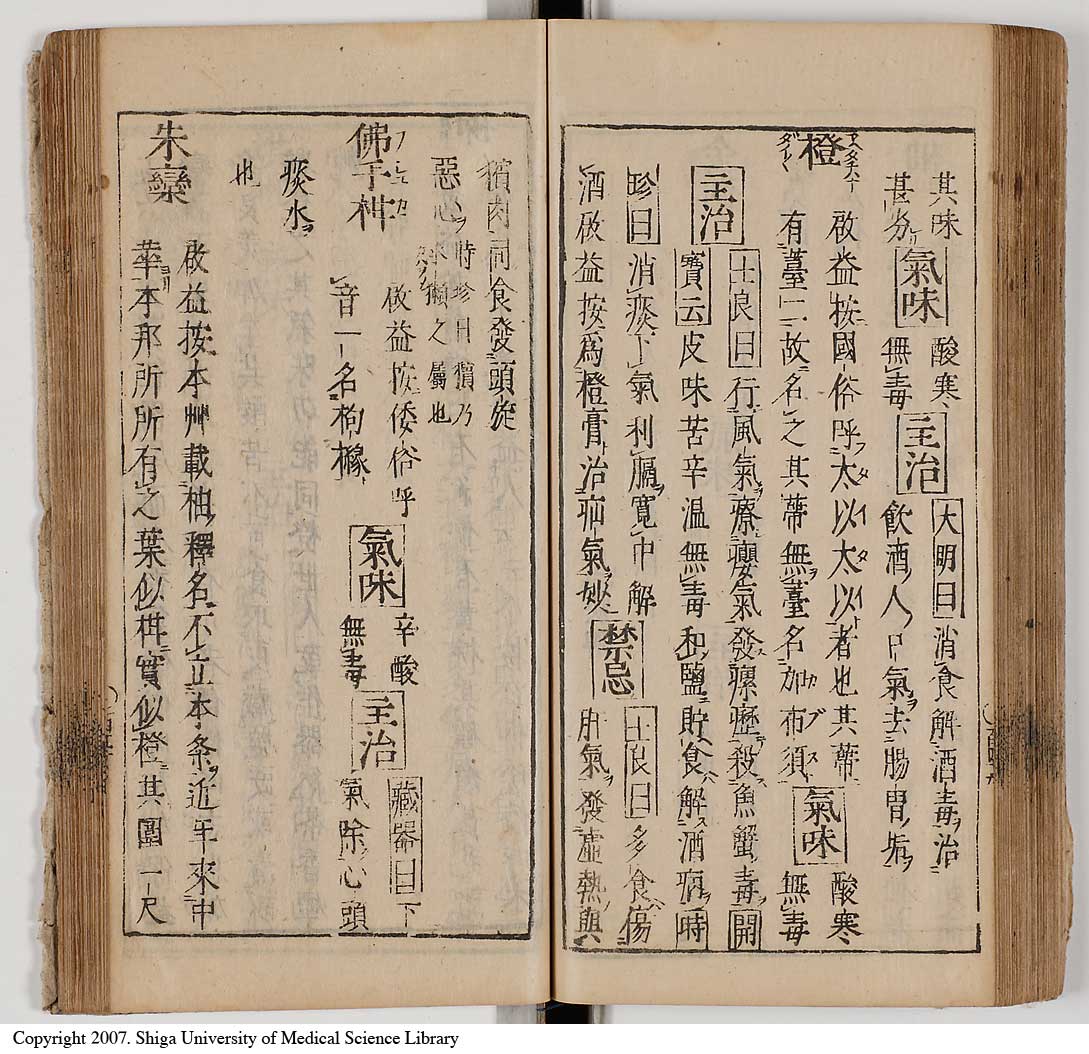 其味
甚穷氣味酸寒
無毒主治大明曰消食解酒毒治
飲酒人口氣去腸胃垢
橙
啟益按國俗呼太以太以者也其蒂
有臺二故名之其蒂無臺名加布須氣味酸寒
無毒
主治士良曰行風氣療癭氣發瘰癧殺魚蟹毒開
寶云皮味苦辛温無毒和鹽貯食解酒病時
珍曰消痰下氣利膈寛中解
酒啟益按爲橙膏治疝氣妙禁忌士良曰多食傷
肝氣發虚熱與
獱肉同食發頭旋
惡心時珍曰獱乃
水獺之屬也
佛手柑
啟益按倭俗呼
音一名枸櫞氣味辛酸
無毒主治藏器曰下
氣除心頭
痰水
也
朱欒
啟益按本艸載柚釋名不立本条近年來中
華本邦所所有之葉似柑實似橙其圍一尺
Copyright 2007. Shiga University of Medical Science Library